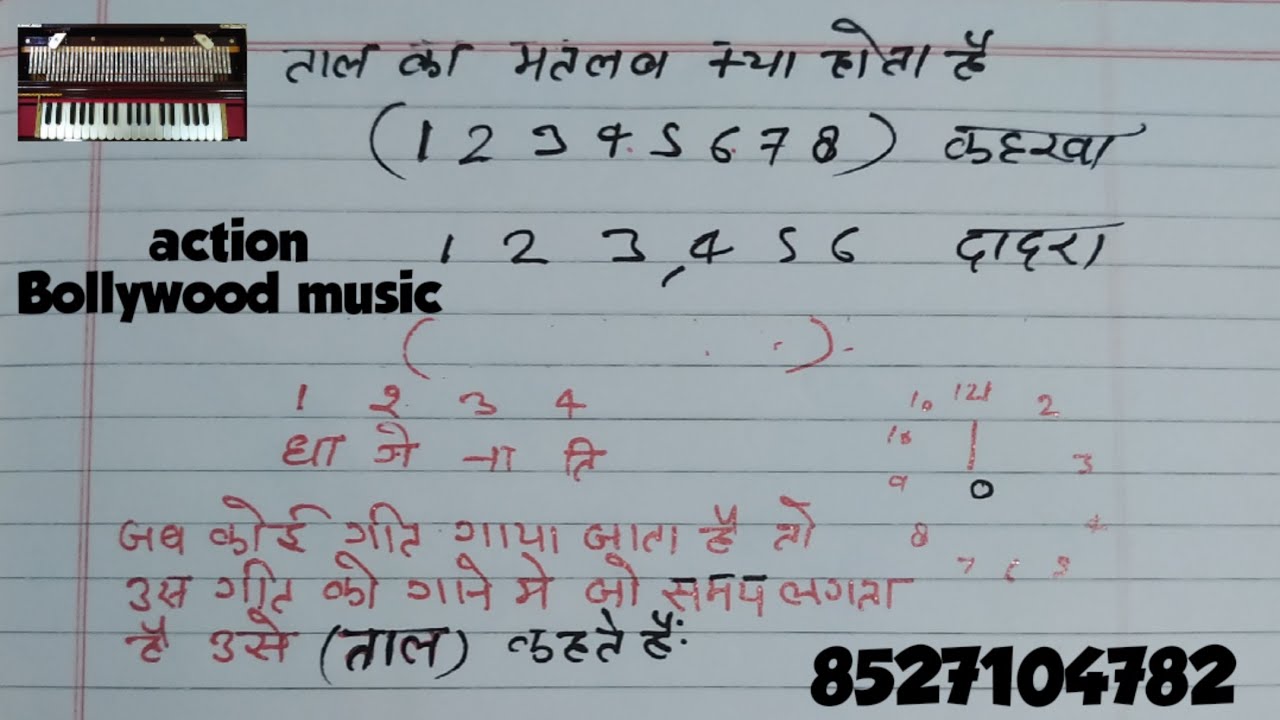 ताल का मतलब क्या होता है
(1 2 3 4 5 6 7 8) कहरवा
action
Bollywood music
1 2 3 4 5 6 दादरा
( )
1 2 3 4
धा गे ना ति
10 12 1 2
10
3
9 0
4
8
7 6 5
जब कोई गीत गाया जाता है तो
उस गीत को गाने मे जो समय लगता
है उसे (ताल) कहते हैं:
8527104782